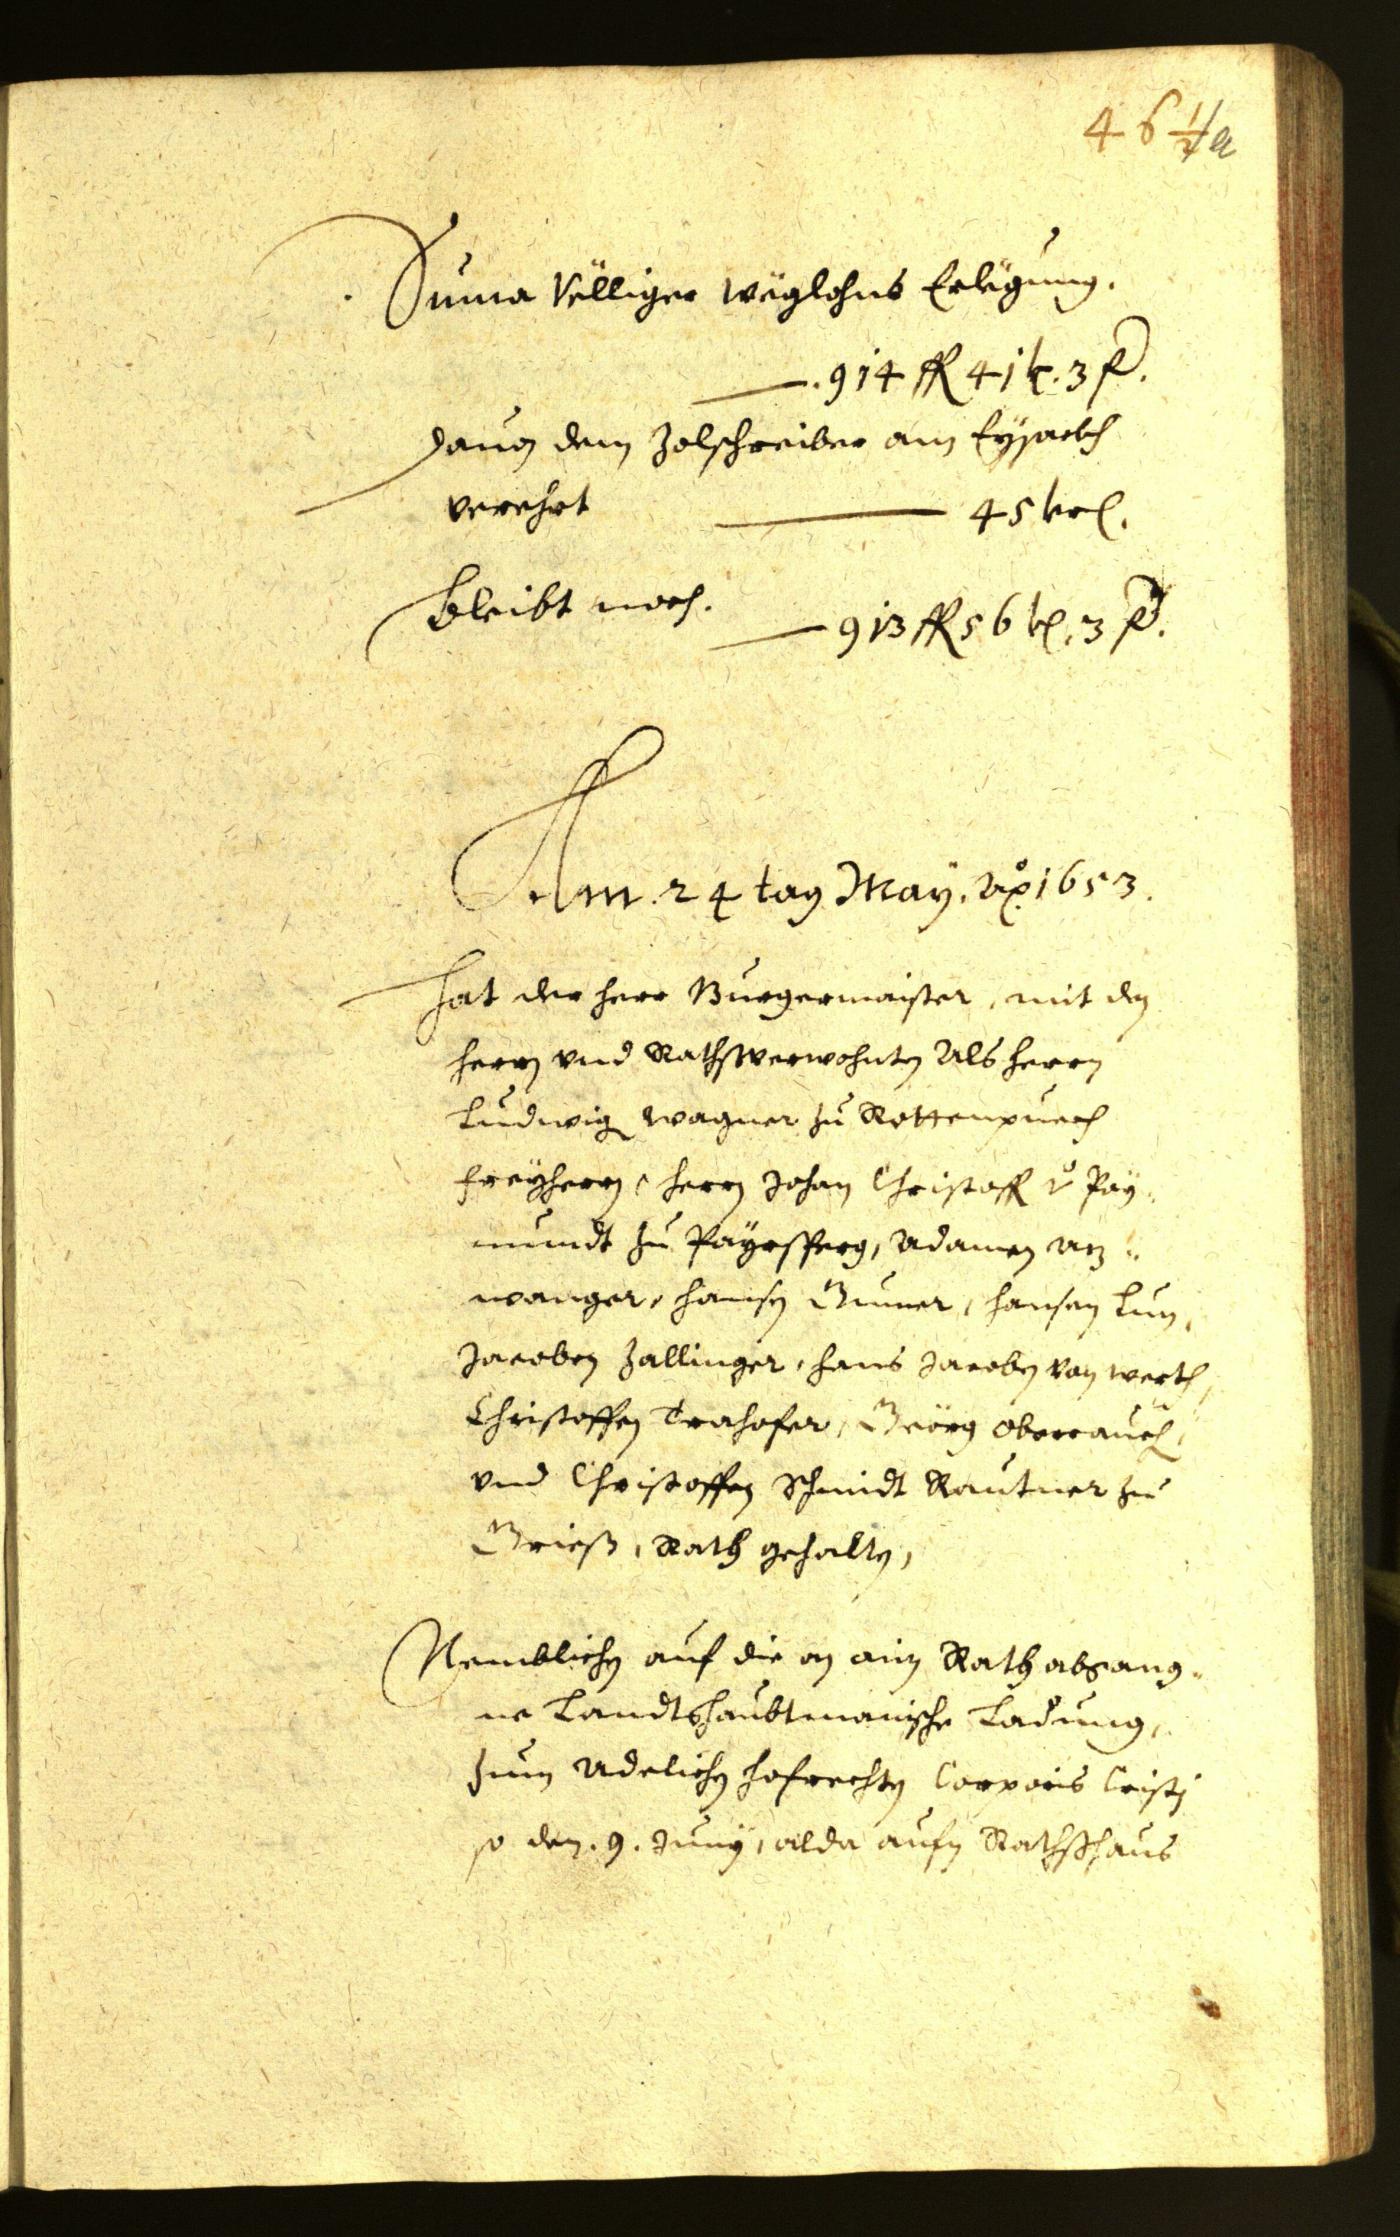 46 1/2 a
Suma Völliger Wëglohns Erlëgung.
.914 fl 41 k. 3 f.
Dauon dem Zolschreiber am Eysackh
verehrt 45 kr.
Bleibt noch.
913 fl 56 k. 3 f.
Am .24 tag May. Aō. 1653.
Hat der Herr Burgermaister, mit den
Herrn vnd Rathsverwohnten Als Herrn
Ludwig Wagner zu Rottenpuech
Freyherrn, Herrn Johan Christoff v° Pay-
mundt zu Payrsperg, Adamen Atz-
wanger, Hansen Gumer, Hansen Lun,
Jacoben Zallinger, Hans Jacoben von Werth,
Christoffen Trahofer, Geörg Oberrauch,
vnd Christoffen Schmidt Rautner zu
Grieß, Rath gehalten,
Nemblichen auf die an ain Rath abgang-
ne Landtshaubtmanische Ladung,
zum Adelichen Hofrechten Corporis Cristj
so den .9. Juny, alda aufn Rathshaus